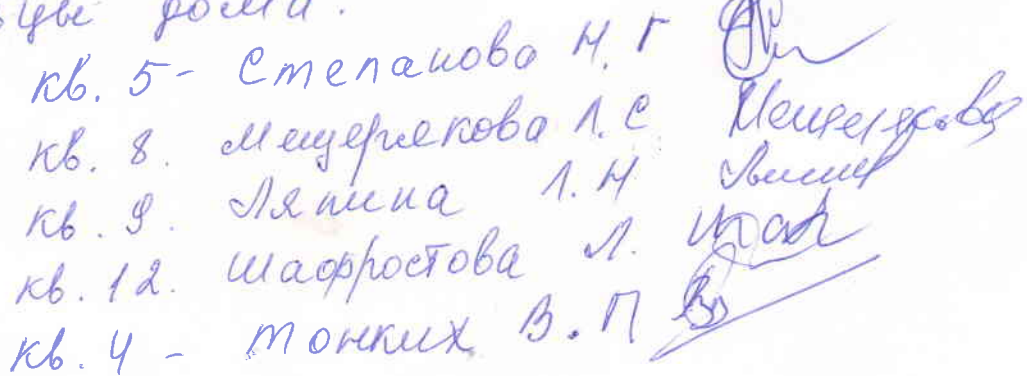 дома.
кв. 5 - Степанова Н. Г
кв. 8. Мещерякова Л. С. Мещерякова
кв. 9. Ляпина Л. Н
кв. 12. Шафростова Л.
кв. 4 - Тонких В. П